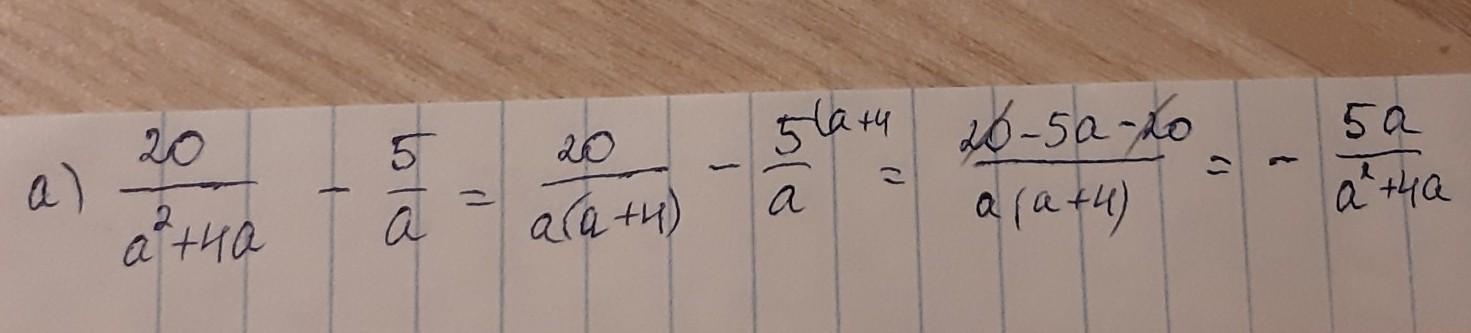 а) 20/(a²+4a) - 5/a = 20/(a(a+4)) - 5/a (a+4 = (20-5a-20)/(a(a+4)) = - 5a/(a²+4a)